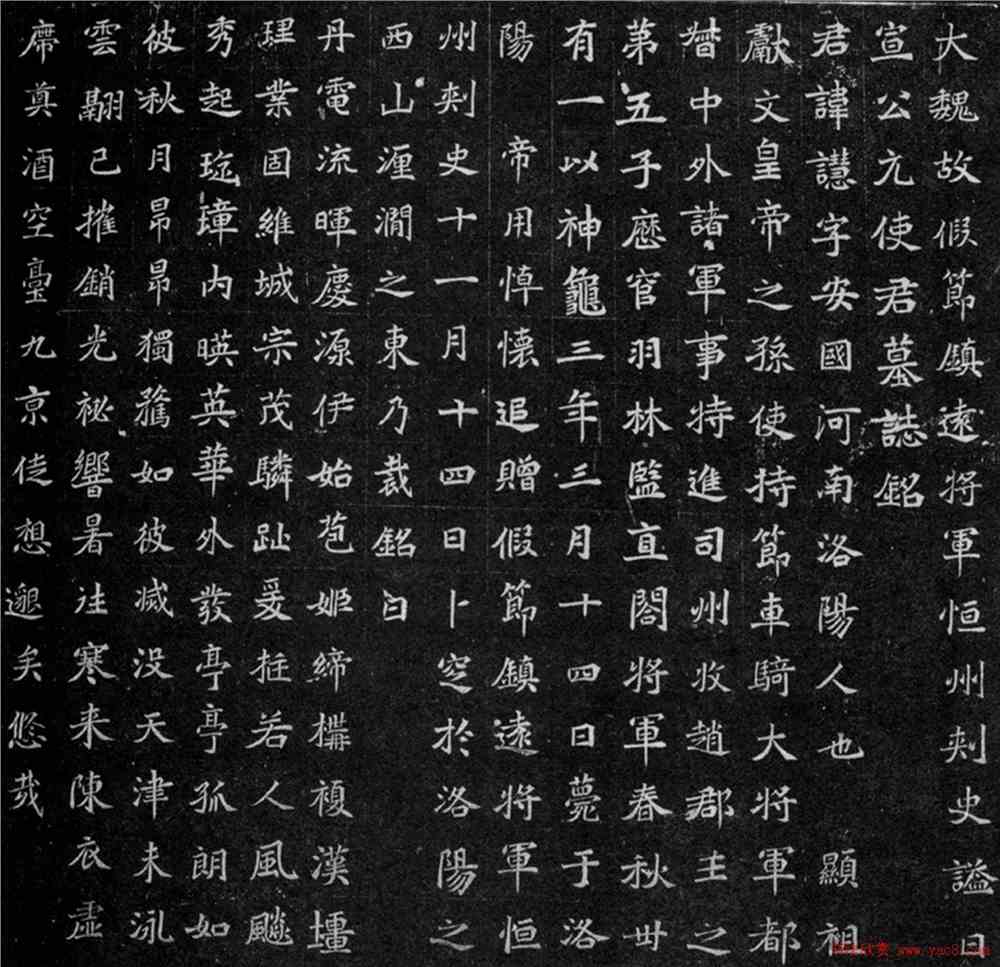 大魏故假節鎮遠將軍恒州刾史謚曰
宣公元使君墓誌銘
君諱譓字安國河南洛陽人也 顯祖
獻文皇帝之孫使持節車騎大將軍都
督中外諸軍事特進司州牧趙郡王之
第五子歷官羽林監直閤將軍春秋卌
有一以神龜三年三月十四日薨于洛
陽 帝用悼懷追贈假節鎮遠將軍恒
州刾史十一月十四日卜窆於洛陽之
西山瀍澗之東乃裁銘曰
丹電流暉慶源伊始苞姬締構複漢壃
理業固維城宗茂驎趾爰挺若人風飈
秀起琁璋内暎英華外發亭亭孤朗如
彼秋月昂昂獨鶩如彼滅没天津未泳
雲翮已摧銷光祕響暑往寒来陳衣虛
席奠酒空臺九京徒想邈矣悠哉
www.yac8.com